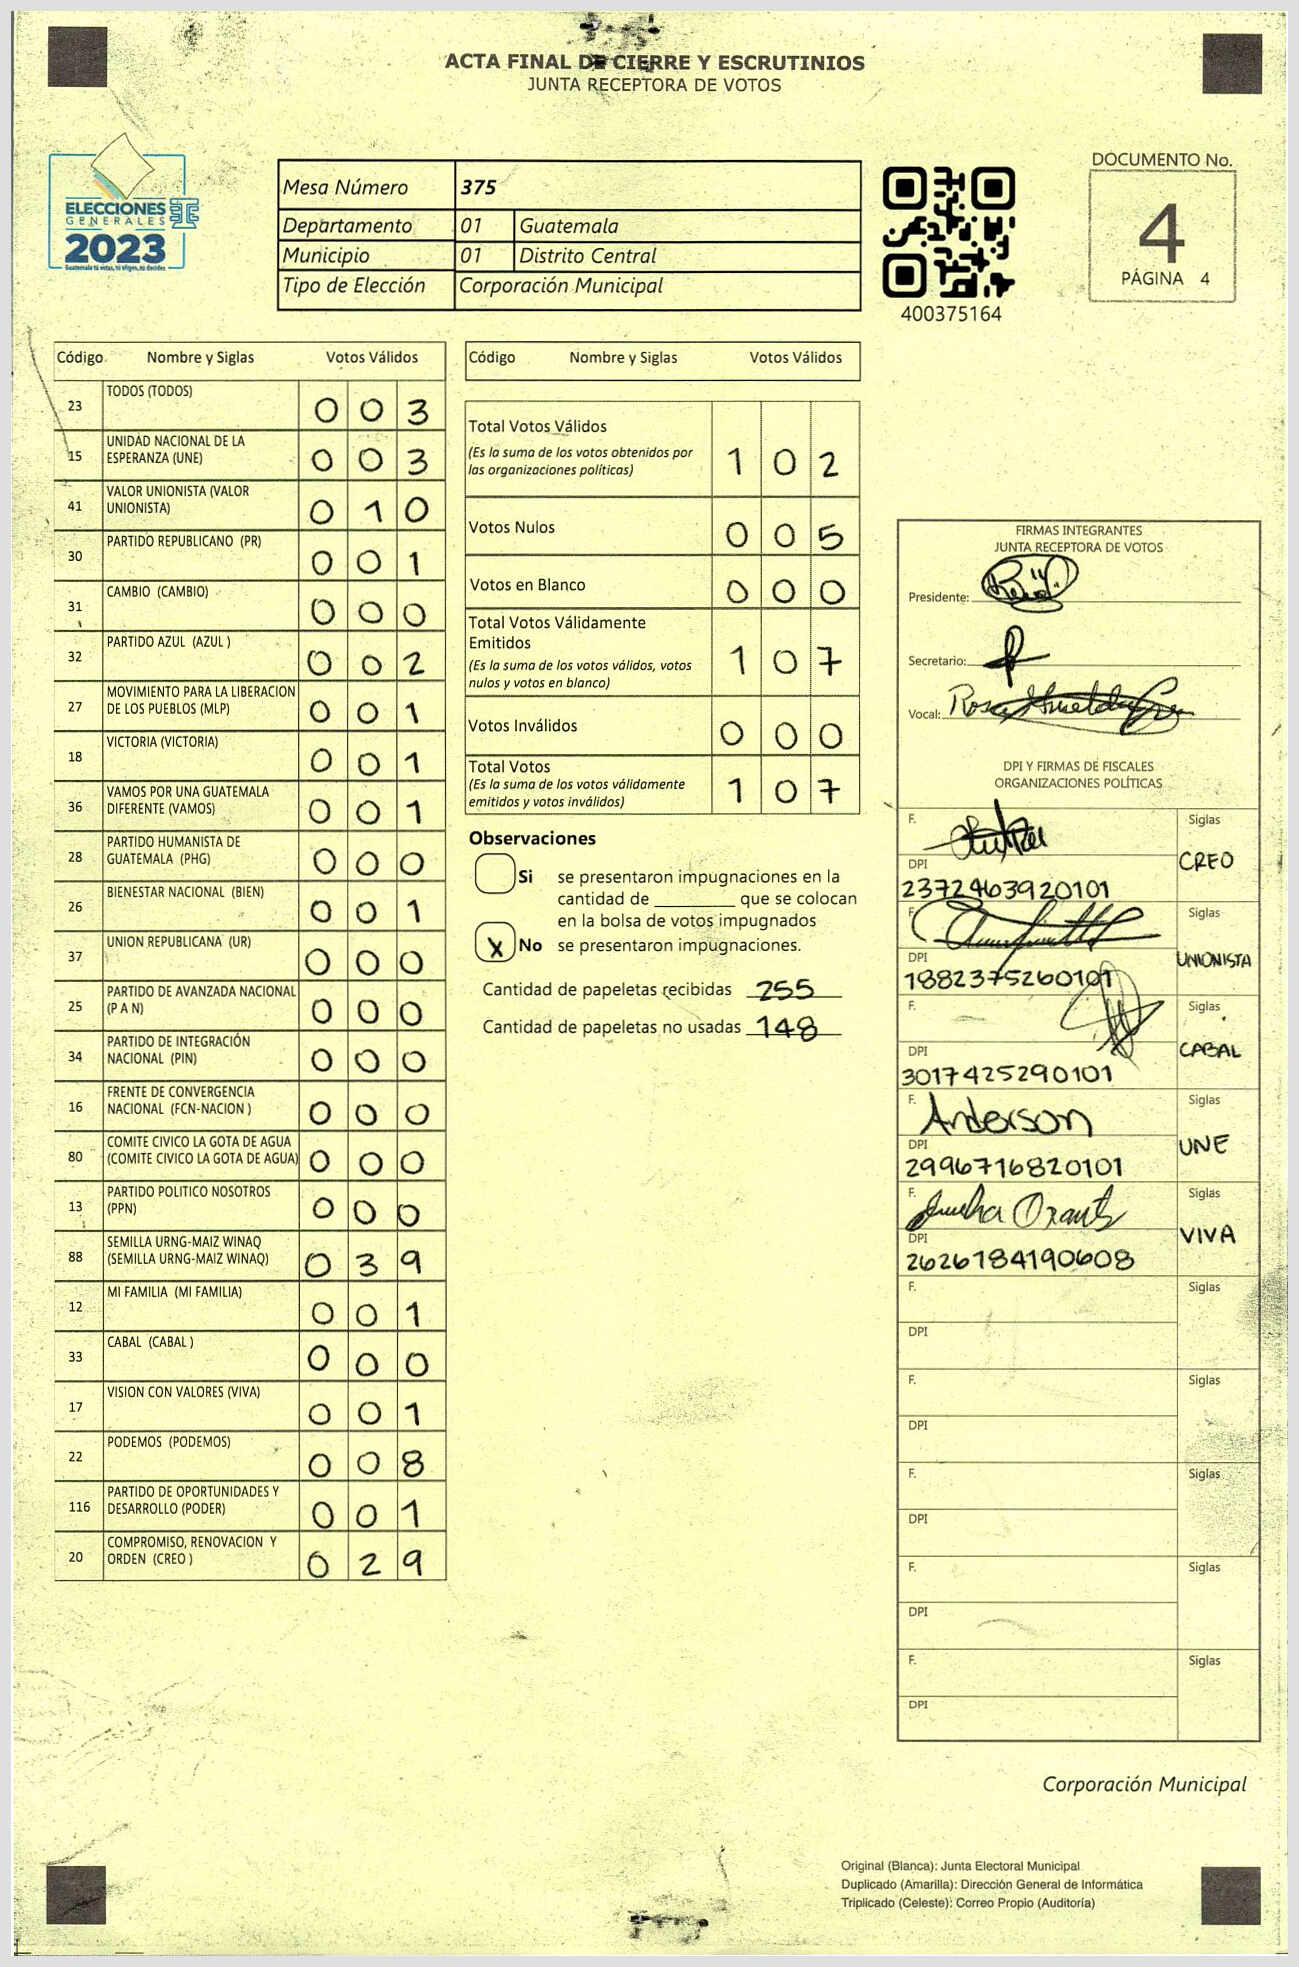 ACTA FINAL DE CIERRE Y ESCRUTINIOS
JUNTA RECEPTORA DE VOTOS
ELECCIONES
GENERALES
2023
Guatemala tú votas, tú eliges, tú decides
Mesa Número 375
Departamento 01 Guatemala
Municipio 01 Distrito Central
Tipo de Elección Corporación Municipal
400375164
DOCUMENTO No.
4
PÁGINA 4
Código Nombre y Siglas Votos Válidos
23 TODOS (TODOS) 0 0 3
15 UNIDAD NACIONAL DE LA ESPERANZA (UNE) 0 0 3
41 VALOR UNIONISTA (VALOR UNIONISTA) 0 1 0
30 PARTIDO REPUBLICANO (PR) 0 0 1
31 CAMBIO (CAMBIO) 0 0 0
32 PARTIDO AZUL (AZUL ) 0 0 2
27 MOVIMIENTO PARA LA LIBERACION DE LOS PUEBLOS (MLP) 0 0 1
18 VICTORIA (VICTORIA) 0 0 1
36 VAMOS POR UNA GUATEMALA DIFERENTE (VAMOS) 0 0 1
28 PARTIDO HUMANISTA DE GUATEMALA (PHG) 0 0 0
26 BIENESTAR NACIONAL (BIEN) 0 0 1
37 UNION REPUBLICANA (UR) 0 0 0
25 PARTIDO DE AVANZADA NACIONAL (P A N) 0 0 0
34 PARTIDO DE INTEGRACIÓN NACIONAL (PIN) 0 0 0
16 FRENTE DE CONVERGENCIA NACIONAL (FCN-NACION ) 0 0 0
80 COMITE CIVICO LA GOTA DE AGUA (COMITE CIVICO LA GOTA DE AGUA) 0 0 0
13 PARTIDO POLITICO NOSOTROS (PPN) 0 0 0
88 SEMILLA URNG-MAIZ WINAQ (SEMILLA URNG-MAIZ WINAQ) 0 3 9
12 MI FAMILIA (MI FAMILIA) 0 0 1
33 CABAL (CABAL ) 0 0 0
17 VISION CON VALORES (VIVA) 0 0 1
22 PODEMOS (PODEMOS) 0 0 8
116 PARTIDO DE OPORTUNIDADES Y DESARROLLO (PODER) 0 0 1
20 COMPROMISO, RENOVACION Y ORDEN (CREO ) 0 2 9
Código Nombre y Siglas Votos Válidos
Total Votos Válidos
(Es la suma de los votos obtenidos por
las organizaciones políticas) 1 0 2
Votos Nulos 0 0 5
Votos en Blanco 0 0 0
Total Votos Válidamente
Emitidos
(Es la suma de los votos válidos, votos
nulos y votos en blanco) 1 0 7
Votos Inválidos 0 0 0
Total Votos
(Es la suma de los votos válidamente
emitidos y votos inválidos) 1 0 7
Observaciones
Si se presentaron impugnaciones en la
cantidad de ________ que se colocan
en la bolsa de votos impugnados
X No se presentaron impugnaciones.
Cantidad de papeletas recibidas 255
Cantidad de papeletas no usadas 148
FIRMAS INTEGRANTES
JUNTA RECEPTORA DE VOTOS
Presidente:
Secretario:
Vocal: Rosa
DPI Y FIRMAS DE FISCALES
ORGANIZACIONES POLÍTICAS
F. Siglas
DPI CREO
2372463920101
F. Siglas
DPI UNIONISTA
1882375260101
F. Siglas
DPI CABAL
3017425290101
F. Anderson Siglas
DPI UNE
2996716820101
F. Siglas
DPI VIVA
2626784190608
F. Siglas
DPI
F. Siglas
DPI
F. Siglas
DPI
F. Siglas
DPI
F. Siglas
DPI
Corporación Municipal
Original (Blanca): Junta Electoral Municipal
Duplicado (Amarilla): Dirección General de Informática
Triplicado (Celeste): Correo Propio (Auditoría)